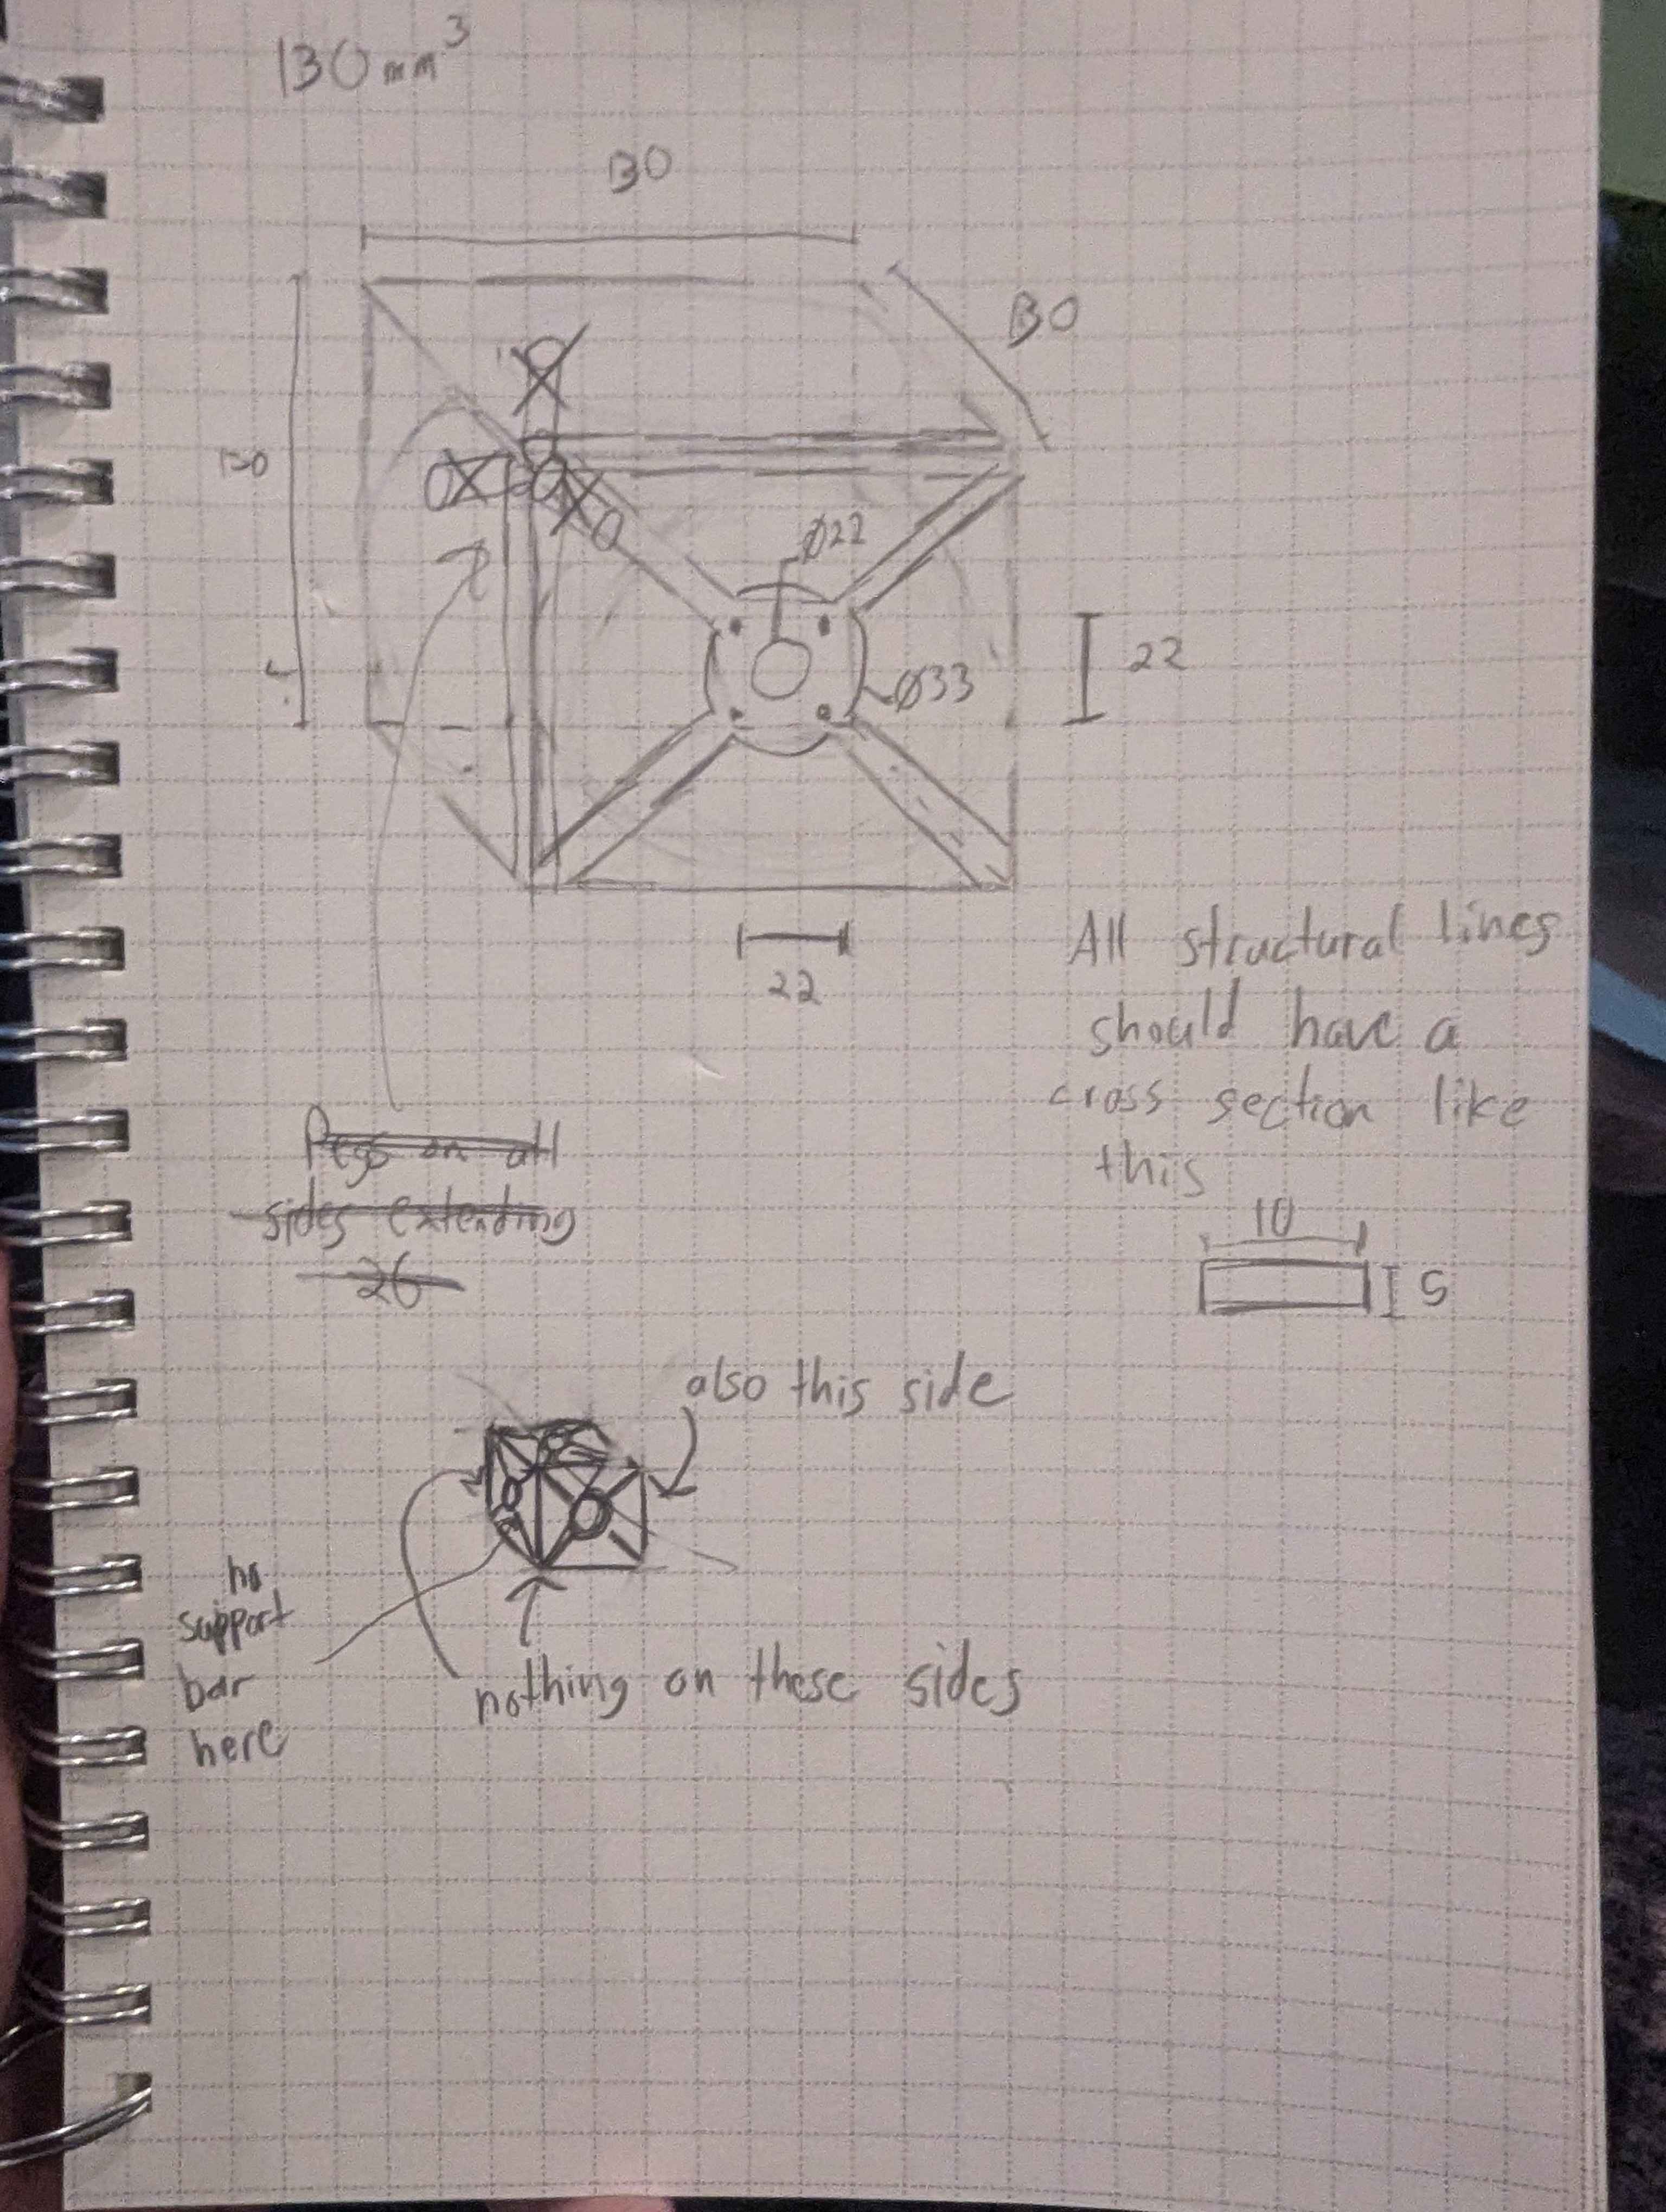 130mm³
130
130
130
Ø22
Ø33
22
22
All structural lines
should have a
cross section like
this
10
5
Pegs on all
sides extending
26
also this side
no
support
bar
here
nothing on these sides